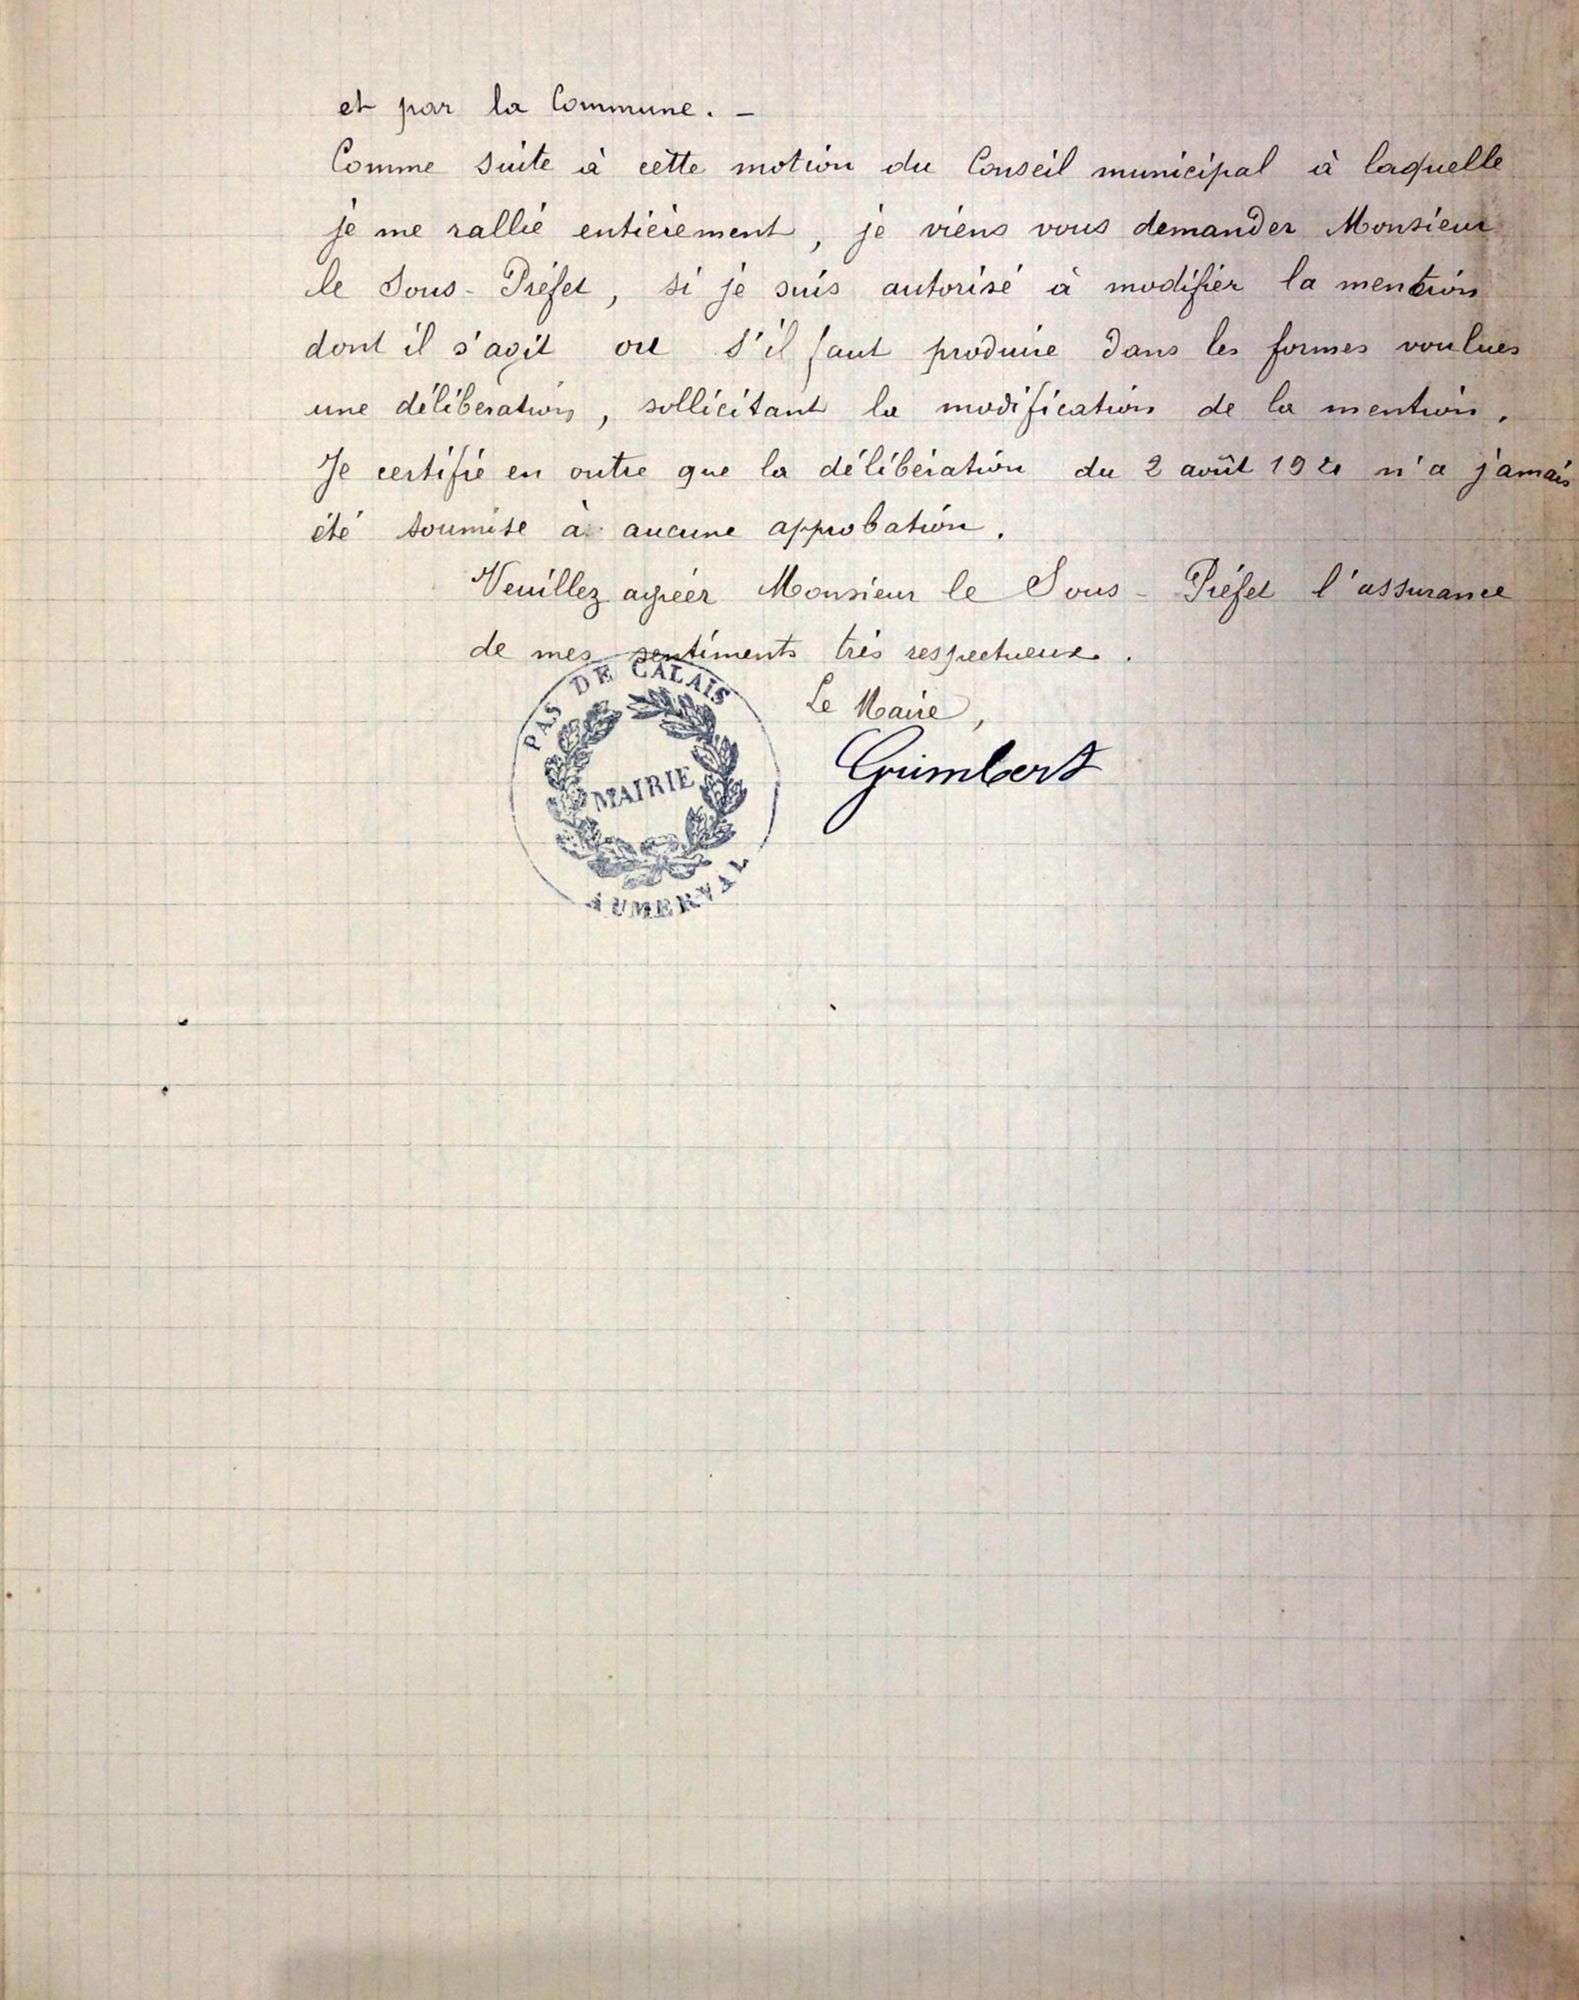 et par la Commune. –
Comme suite à cette motion du Conseil municipal à laquelle
je me rallie entièrement, je viens vous demander Monsieur
le Sous-Préfet, si je suis autorisé à modifier la mention
dont il s'agit ou s'il faut produire dans les formes voulues
une délibération, sollicitant la modification de la mention.
Je certifie en outre que la délibération du 2 août 1920 n'a jamais
été soumise à aucune approbation.
Veuillez agréer Monsieur le Sous-Préfet l'assurance
de mes sentiments très respectueux.
Le Maire,
Grimbert
PAS DE CALAIS
MAIRIE
AUMERVAL